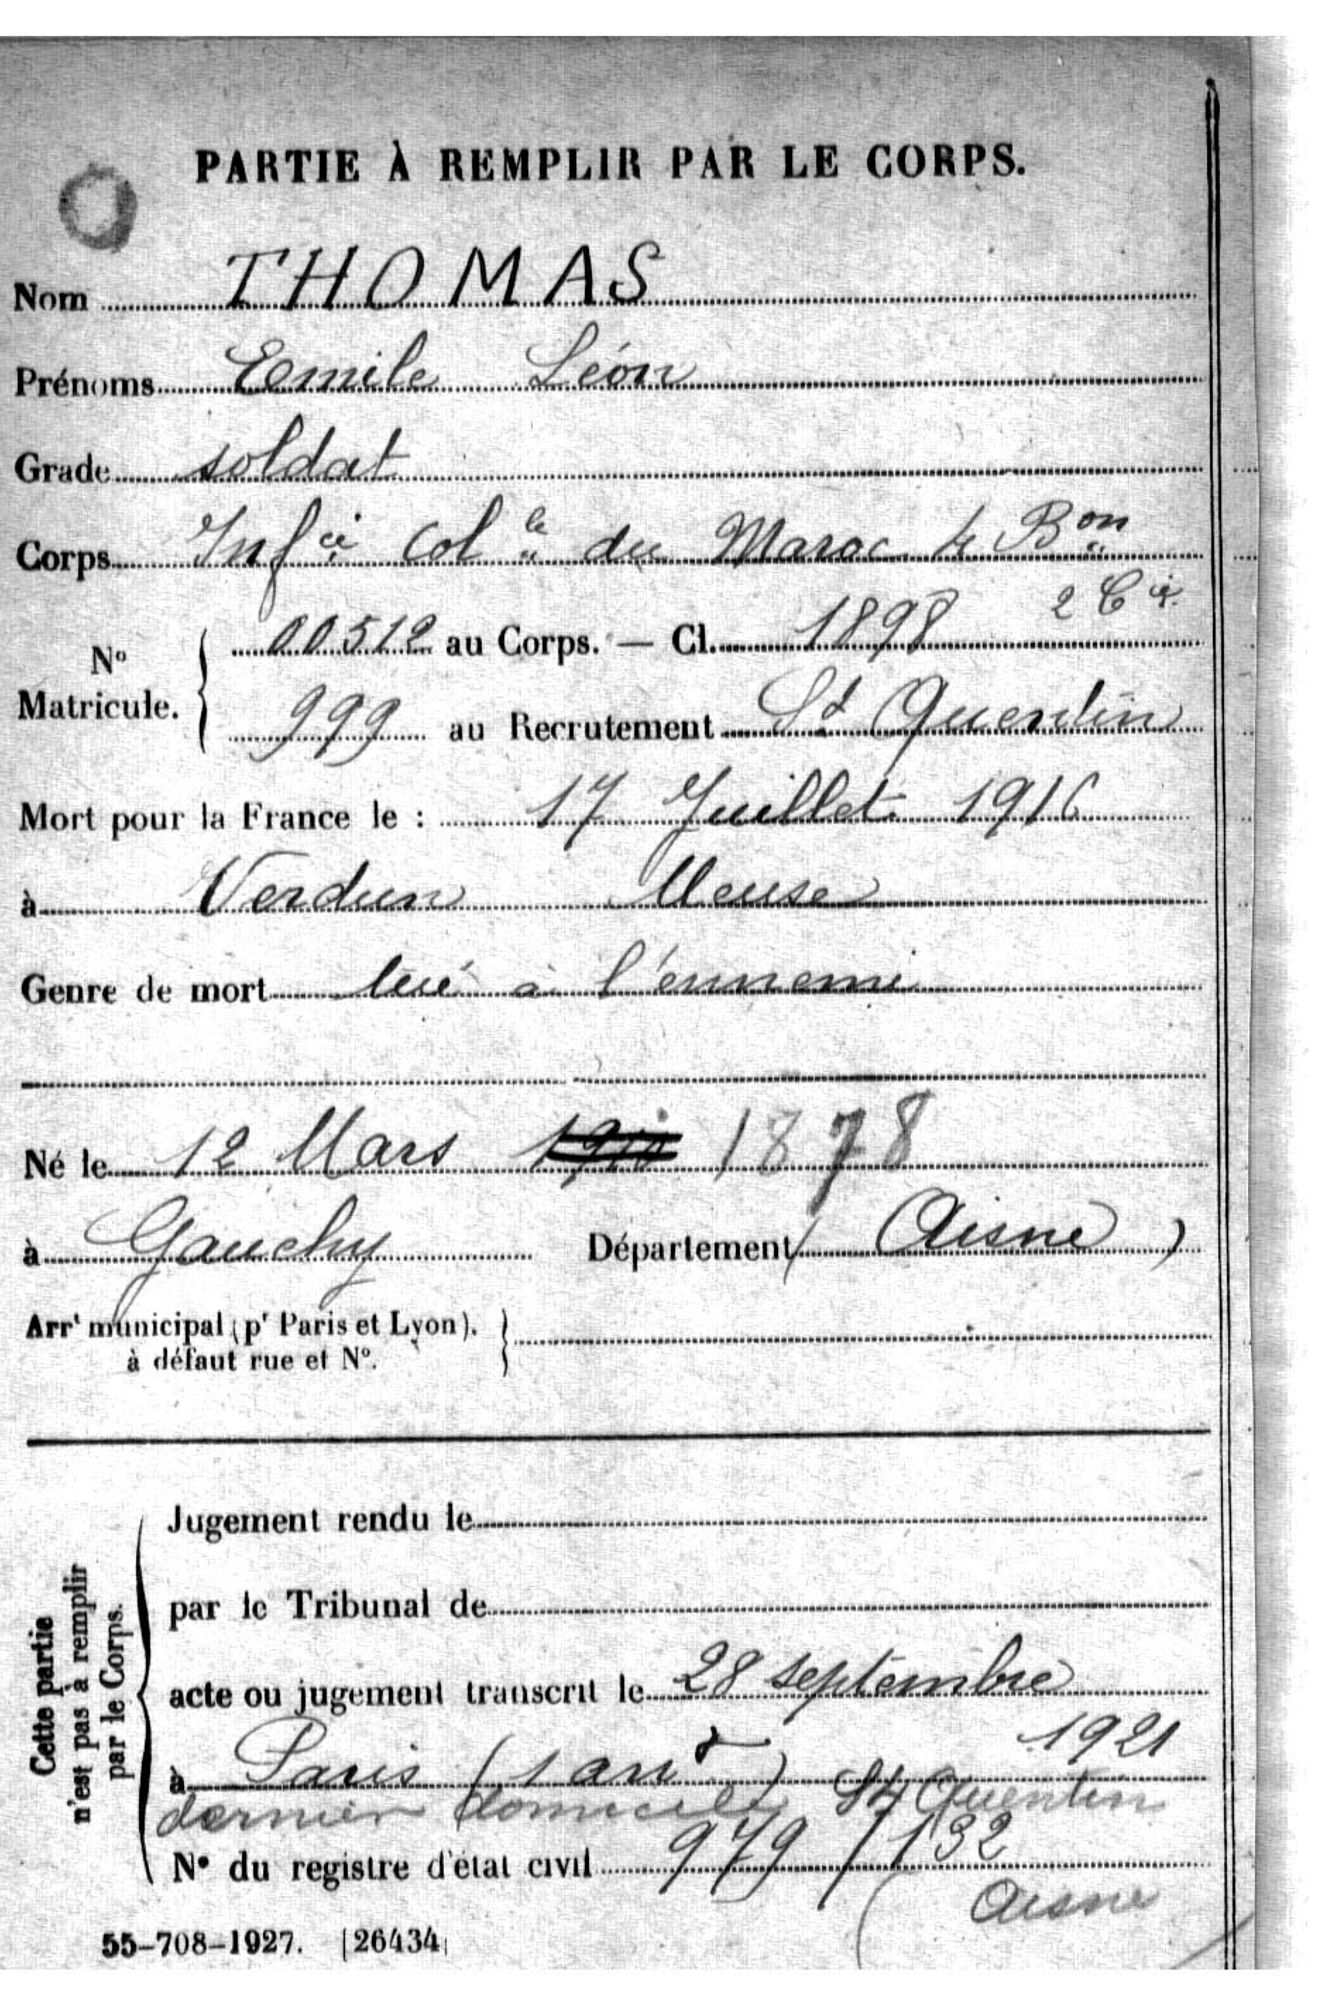 PARTIE À REMPLIR PAR LE CORPS.
Nom THOMAS
Prénoms Emile Léon
Grade soldat
Corps Inf ie Col le du Maroc 4 Bon
2 Cie
N° Matricule. 00512 au Corps. — Cl. 1898
999 au Recrutement St Quentin
Mort pour la France le : 17 Juillet 1916
à Verdun Meuse
Genre de mort tué à l'ennemi
Né le 12 Mars 1878
à Gauchy Département (Aisne)
Arrt municipal (pr Paris et Lyon).
à défaut rue et N°.
Cette partie
n'est pas à remplir
par le Corps.
Jugement rendu le
par le Tribunal de
acte ou jugement transcrit le 28 septembre
1921
à Paris (1 arrt)
dernier domicile St Quentin
N° du registre d'état civil 979/132
Aisne
55-708-1927. [26434]